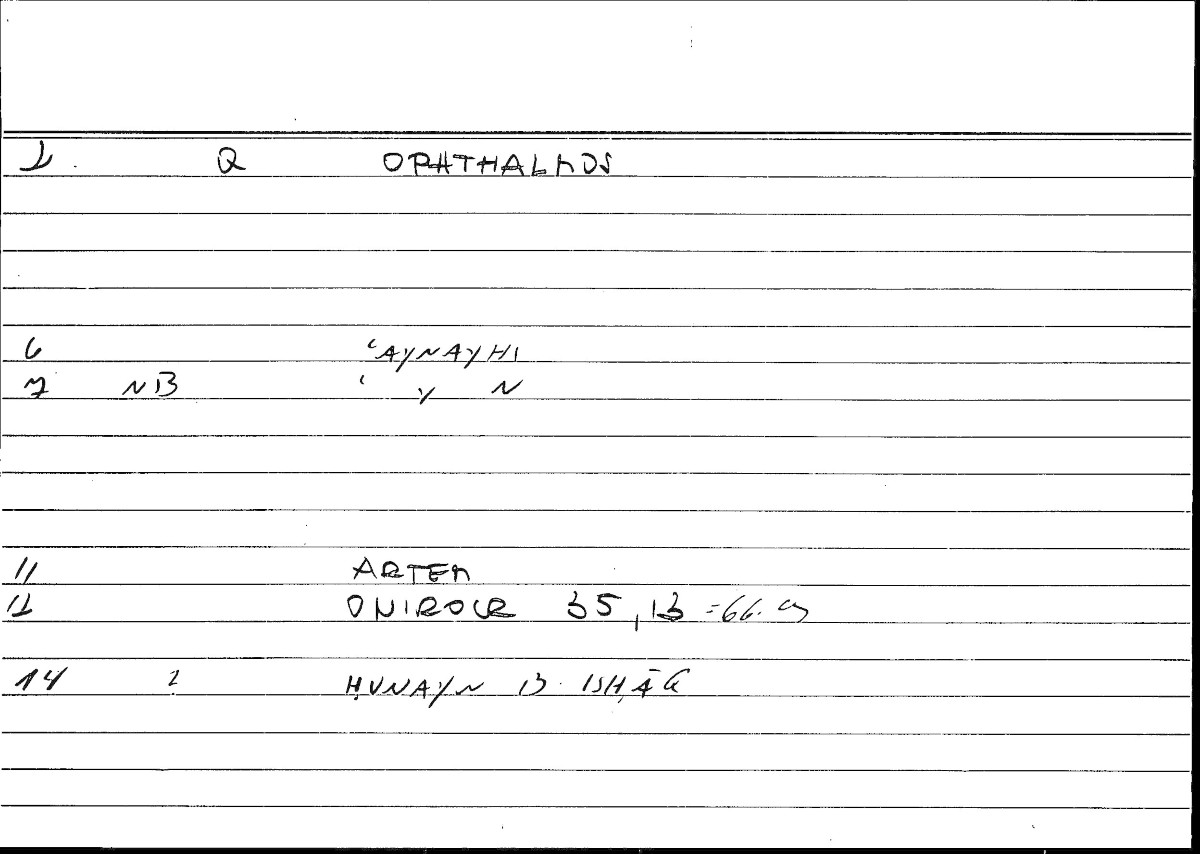 1 Q OPHTHALMOS
6 ʿAYNAYHI
7 NB ʿ Y N
11 ARTEM
12 ONIROCR 35,13 =66.
14 2 ḤUNAYN B. ISḤĀQ